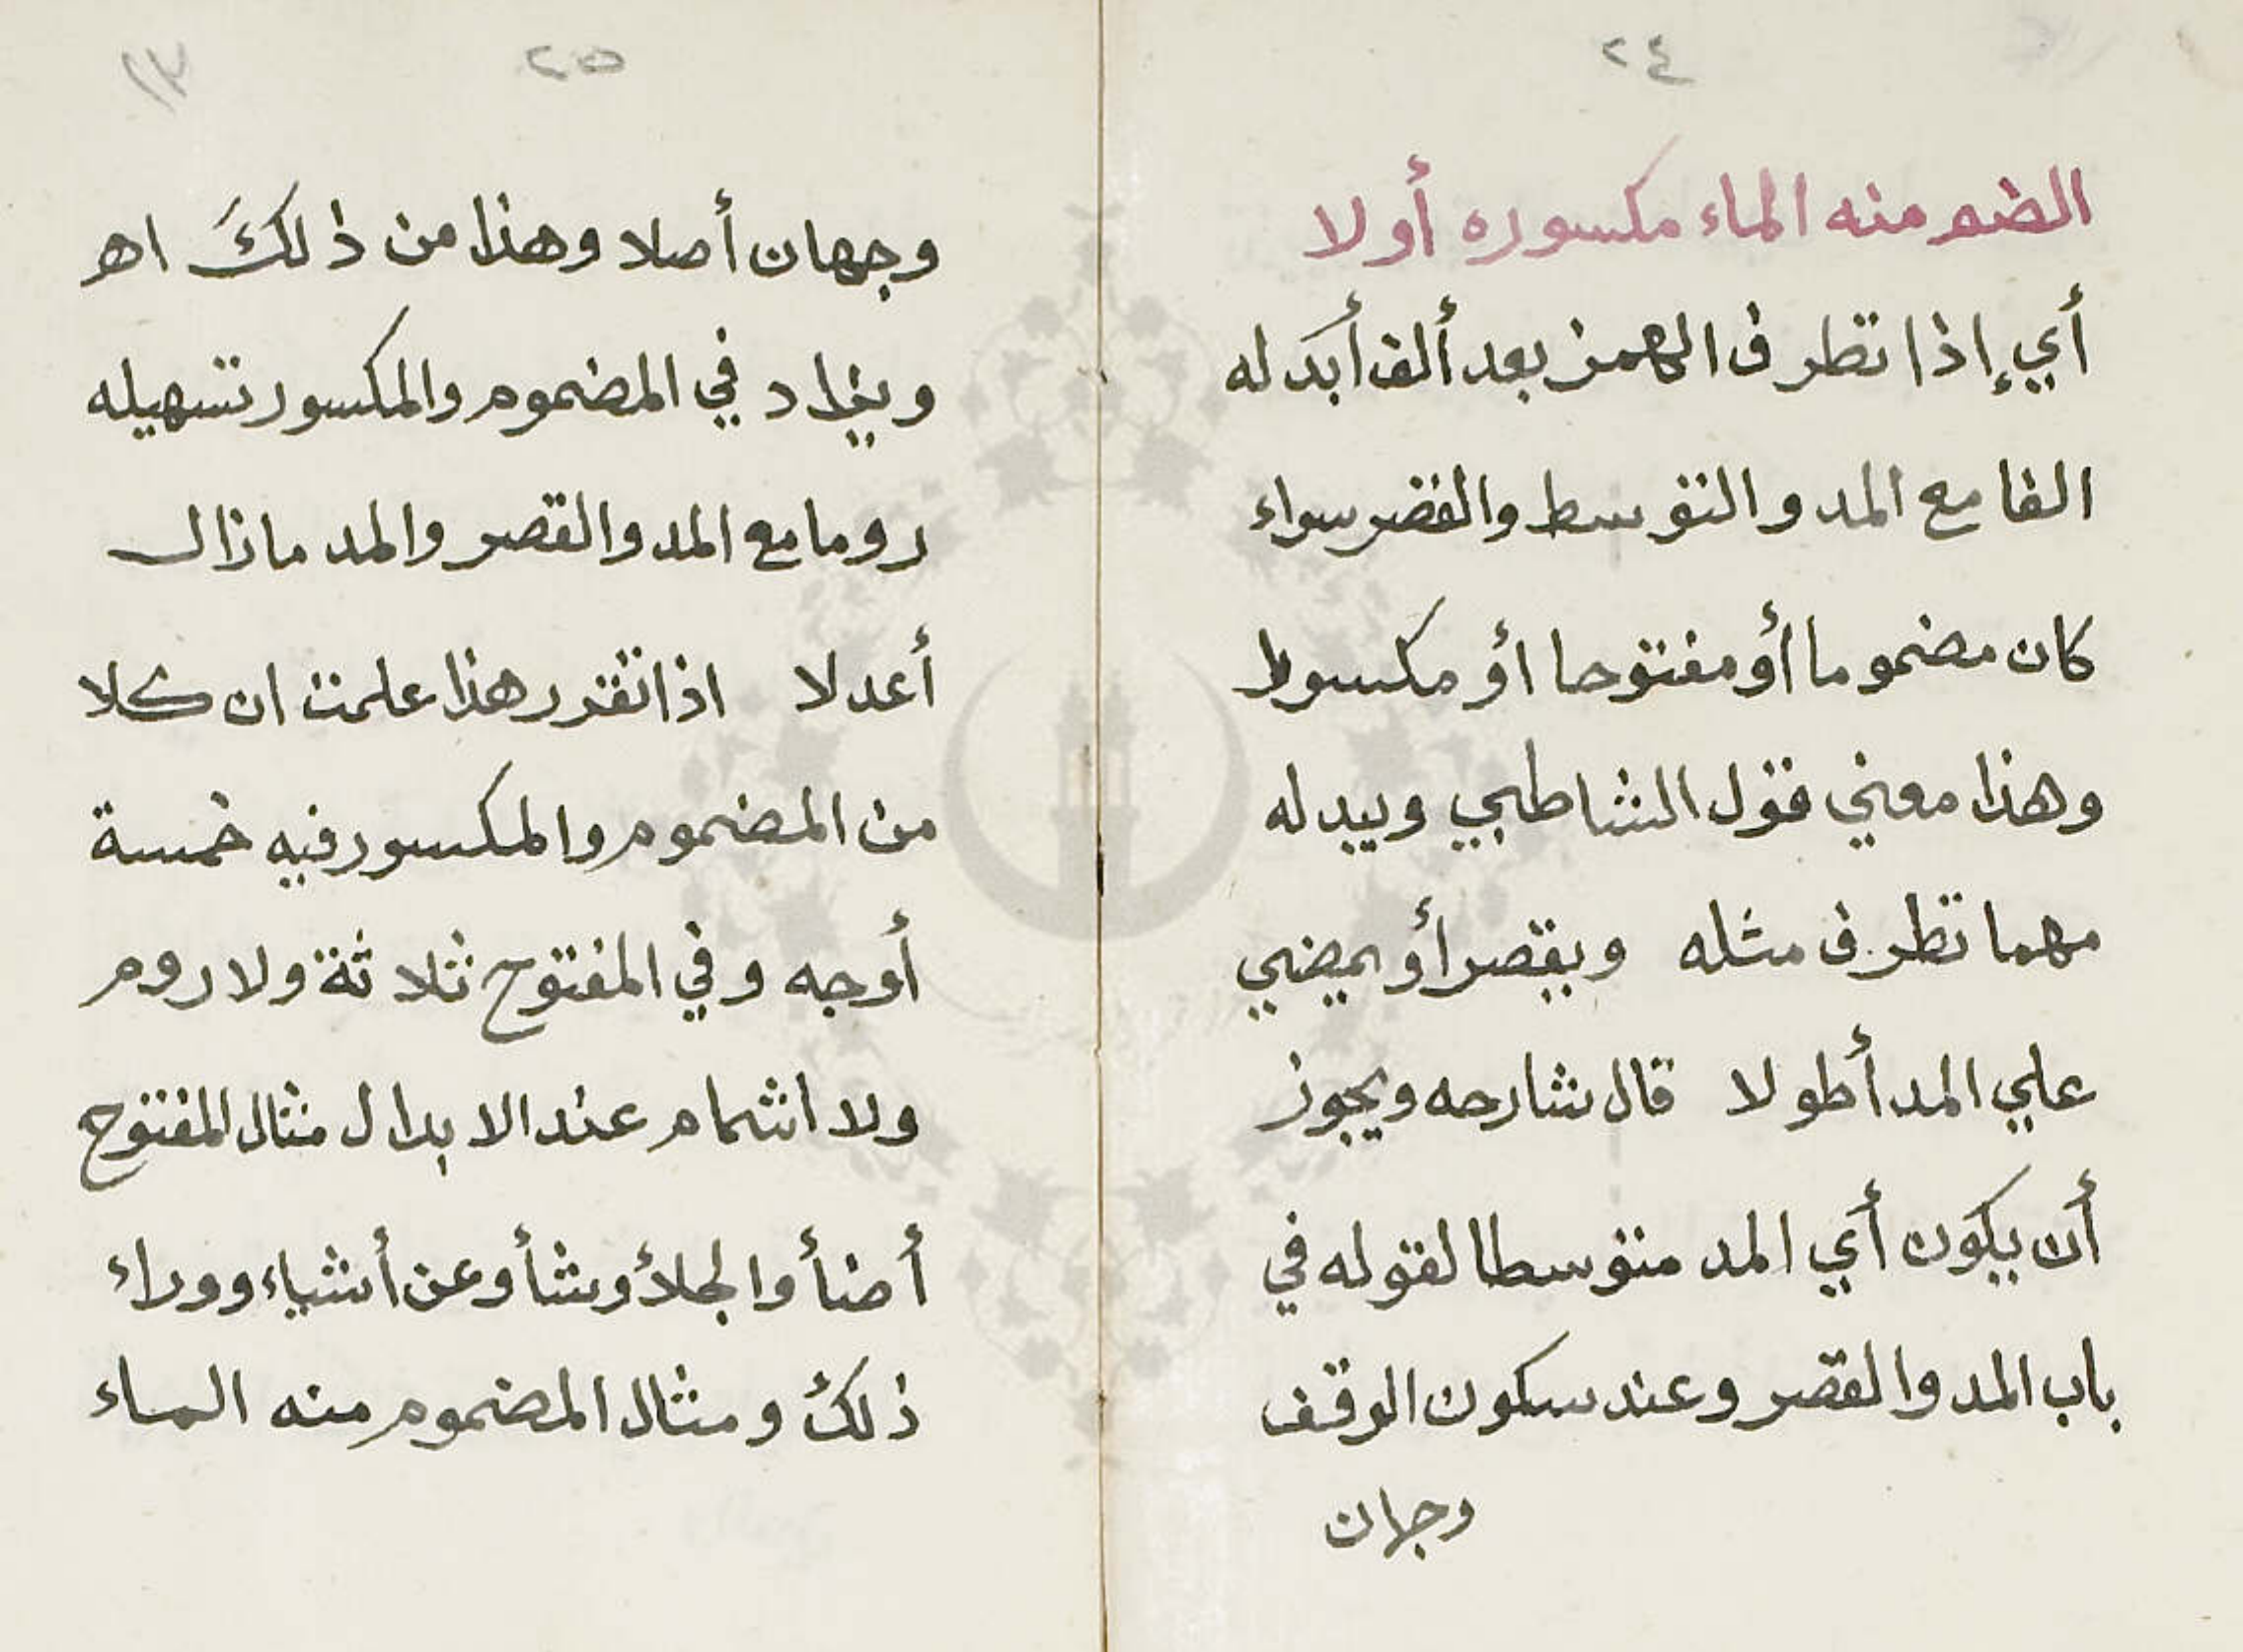 ٢٤
الضم منه الماء مكسوره أولا
أي إذا تطرف الهمز بعد ألف أبدله
الفا مع المد والتوسط والقصر سواء
كان مضموما أو مفتوحا أو مكسورا
وهذا معني قول الشاطبي ويبدله
مهما تطرف مثله ويقصر أو يمضي
علي المد أطولا قال شارحه ويجوز
أن يكون أي المد متوسطا لقوله في
باب المد والقصر وعند سكون الوقف
وجهان
٢٥
١٣
وجهان أصلا وهذا من ذلكَ اهـ
ويزاد في المضموم والمكسور تسهيله
روما مع المد والقصر والمد مازال
أعدلا اذا تقرر هذا علمت ان كلا
من المضموم والمكسور فيه خمسة
أوجه وفي المفتوح ثلاثة ولا روم
ولا اشمام عند الابدال مثال المفتوح
أضأ والجلأ وشأ وعن أشياء ووراء
ذلك ومثال المضموم منه الماء